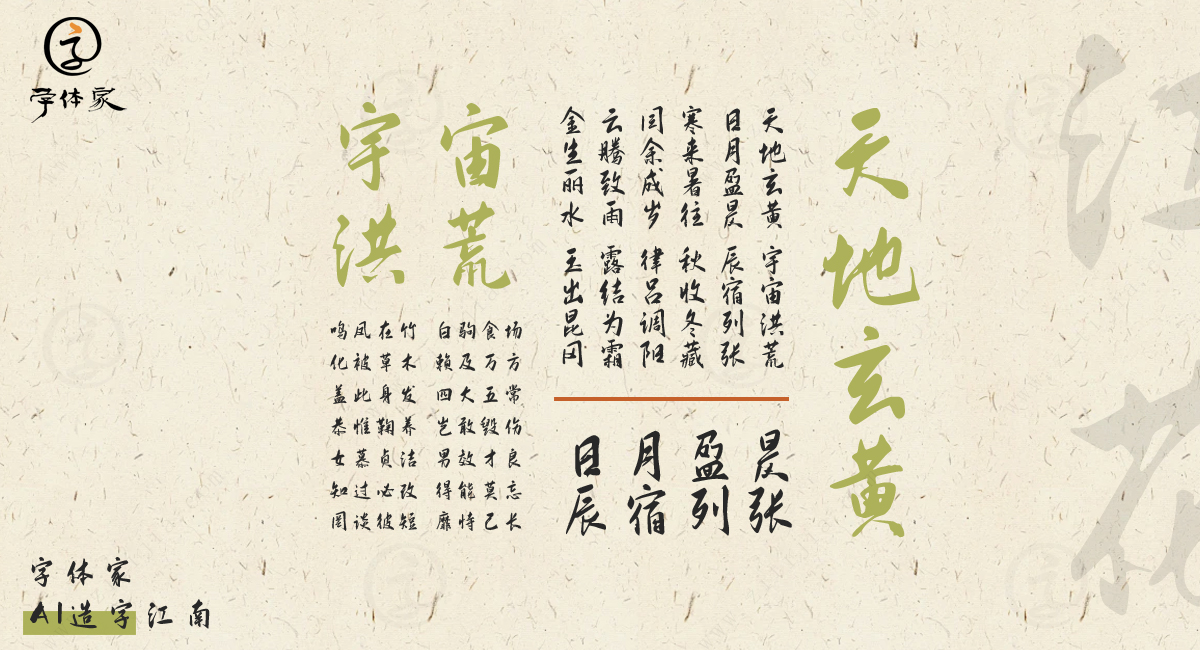 字体家
天地玄黄
宇宙
洪荒
天地玄黄 宇宙洪荒
日月盈昃 辰宿列张
寒来暑往 秋收冬藏
闰余成岁 律吕调阳
云腾致雨 露结为霜
金生丽水 玉出昆冈
日月盈昃
辰宿列张
鸣凤在竹 白驹食场
化被草木 賴及万方
盖此身发 四大五常
恭惟鞠养 岂敢毁伤
女慕贞洁 男效才良
知过必改 得能莫忘
罔谈彼短 靡恃己长
字体家
AI造字江南
江花